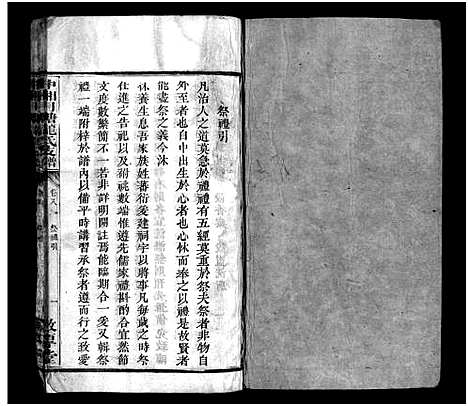 祭禮引
凡治人之道莫急於禮禮有五經莫重於祭夫祭者非物自
外至者也自中出生於心者也心怵而奉之以禮是故賢者
能盡祭之義今沐
休養生息吾家族姓蕃衍爰建祠宇以將事凡每歲之時祭
仕進之告祀以及祔祧數端惟遵先儒家禮斟酌合宜然節
文度數繁簡不一若非詳明開註焉能臨期合一爰又輯祭
禮一端附梓於譜內以備平時講習承祭者遵而行之致愛
支譜
卷八
祭禮引
一
敦厚堂